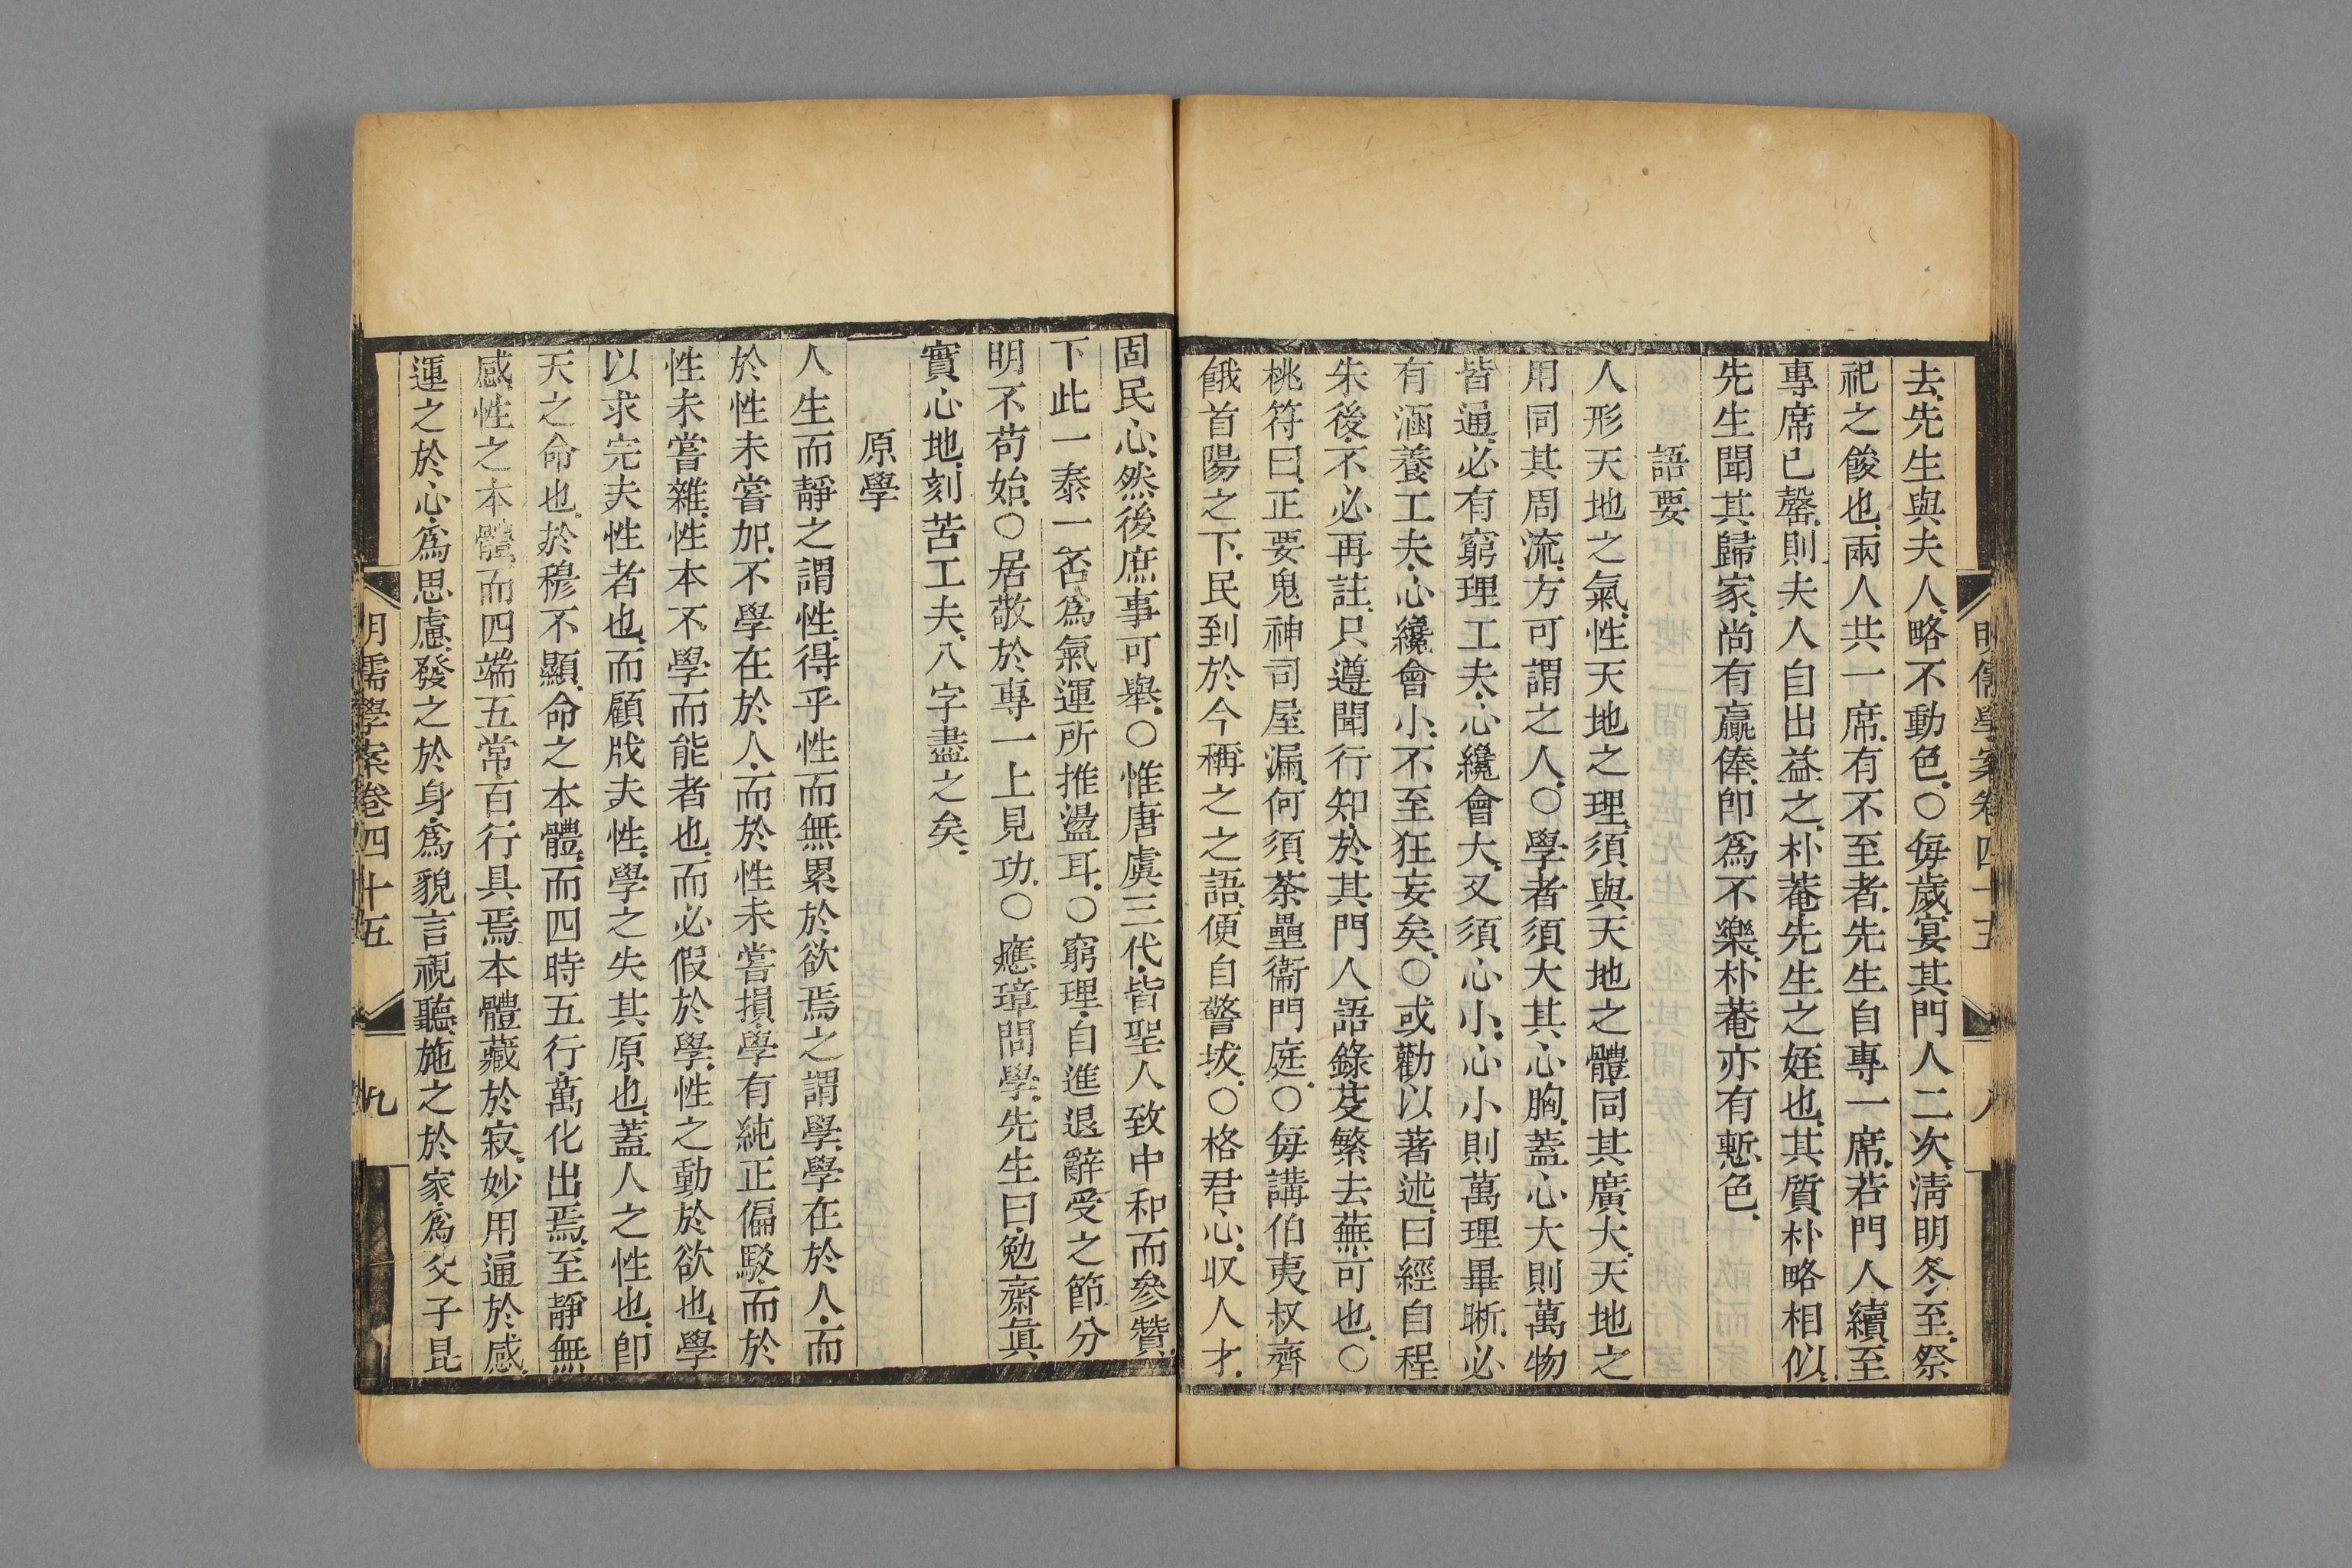 明儒學案卷四十五
八
去先生與夫人略不動色○每歲宴其門人二次淸明冬至祭
祀之餕也兩人共一席有不至者先生自專一席若門人續至
專席已罄則夫人自出益之朴菴先生之姪也其質朴略相似
先生聞其歸家尚有贏俸卽爲不樂朴菴亦有慙色
語要
人形天地之氣性天地之理須與天地之體同其廣大天地之
用同其周流方可謂之人○學者須大其心胸蓋心大則萬物
皆通必有窮理工夫心纔會大又須心小心小則萬理畢晰必
有涵養工夫心纔會小不至狂妄矣○或勸以著述曰經自程
朱後不必再註只遵聞行知於其門人語錄芟繁去蕪可也○
桃符曰正要鬼神司屋漏何須荼壘衞門庭○每講伯夷叔齊
餓首陽之下民到於今稱之之語便自警拔○格君心收人才
固民心然後庶事可舉○惟唐虞三代皆聖人致中和而參贊
下此一泰一否爲氣運所推盪耳○窮理自進退辭受之節分
明不苟始○居敬於專一上見功○應璋問學先生曰勉齋眞
實心地刻苦工夫八字盡之矣
原學
人生而靜之謂性得乎性而無累於欲焉之謂學學在於人而
於性未嘗加不學在於人而於性未嘗損學有純正偏駁而於
性未嘗雜性本不學而能者也而必假於學性之動於欲也學
以求完夫性者也而顧戕夫性學之失其原也蓋人之性也卽
天之命也於穆不顯命之本體而四時五行萬化出焉至靜無
感性之本體而四端五常百行具焉本體藏於寂妙用通於感
運之於心爲思慮發之於身爲貌言視聽施之於家爲父子昆
明儒學案卷四十五
九